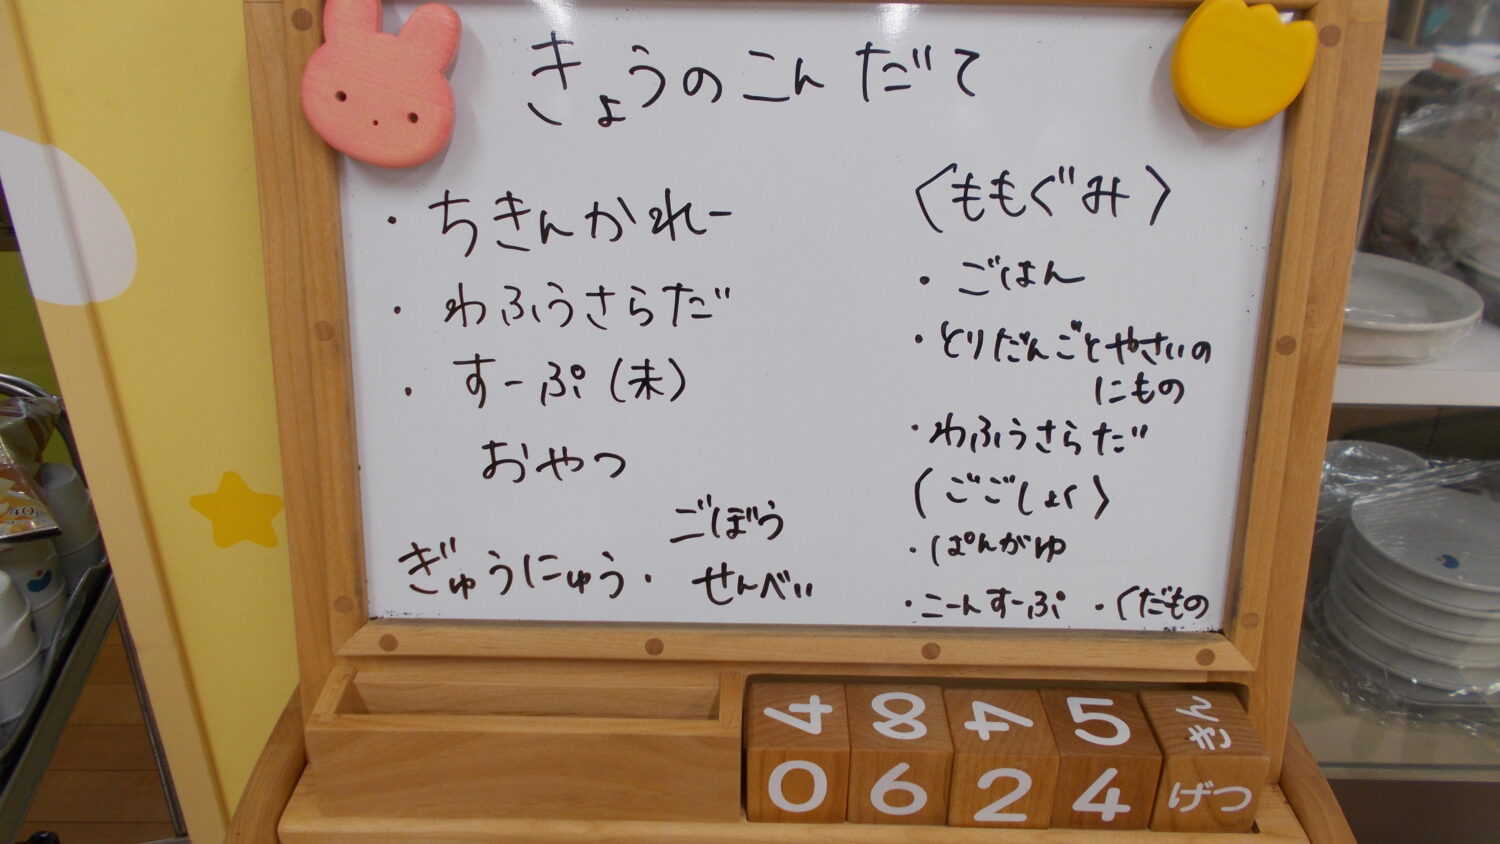 きょうのこんだて
・ちきんかれー
・わふうさらだ
・すーぷ(未)
おやつ
ぎゅうにゅう・ごぼう
せんべい
〈ももぐみ〉
・ごはん
・とりだんごとやさいの
にもの
・わふうさらだ
(ごごしょく)
・ぱんがゆ
・こーんすーぷ ・くだもの
4 8 4 5 きん
0 6 2 4 げつ